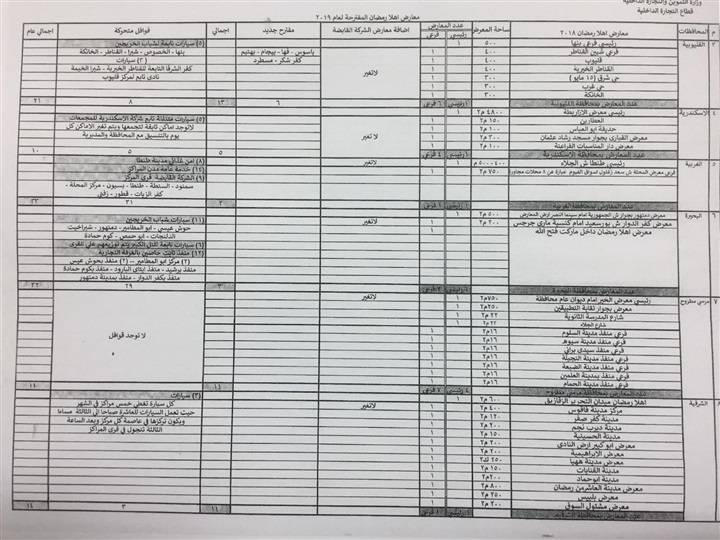 وزارة التموين والتجارة الداخلية
قطاع التجارة الداخلية
معارض اهلا رمضان المقترحة لعام ٢٠١٩
م المحافظات معارض اهلا رمضان ٢٠١٨ مساحة المعرض عدد المعارض اضافة معارض الشركة القابضة مقترح جديد اجمالي قوافل متحركة اجمالي عام
رئيسي فرعي
٣ القليوبية رئيسي فرعي بنها ٥٠٠ ١ لاتغير باسوس - قها - بيجام - بهتيم (٥) سيارات تابعة لشباب الخريجين
فرعي شبين القناطر ٤٠٠ ١ كفر شكر - مسطرد بنها - الخصوص - شبرا - القناطر - الخانكة
قليوب ٤٠٠ ١ (٣) سيارات
القناطر الخيرية ٤٠٠ ١ كفر الشرفا التابعة للقناطر الخيرية - شبرا الخيمة
حي شرق (١٥ مايو) ٣٠٠ ١ نادي تابع لمركز قليوب
حي غرب ٣٠٠ ١
الخانكة ٣٠٠ ١
عدد المعارض بمحافظة القليوبية ١ رئيسي ٦ فرعي ٦ ١٣ ٨ ٢١
٤ الاسكندرية رئيسي معرض الازاريطة ٤٨٠٠ م٢ ١ لا تغير (٥) سيارات متنقلة تابع شركة الاسكندرية للمجمعات
العطارين ١٥٠ م٢ ١ لاتوجد اماكن ثابتة لتجمعها ويتم تغير الاماكن كل
حديقة ابو العباس ١٠٠ م٢ ١ يوم بالتنسيق مع المحافظة والمديرية
معرض القباري بجوار مسجد رشاد عثمان ٣٠٠ م٢ ١
معرض دار المناسبات الفراعنة ١٠٠ م٢ ١
عدد المعارض بمحافظة الاسكندرية ١ رئيسي ٤ فرعي ٥ ٥ ١٠
٥ الغربية رئيسي طنطا ش الجلاء ٤٠٠-٥٠٠٠ م ١ لاتغير (٨) امن غذائي مدينة طنطا
فرعي معرض المحلة ش سعد زغلول اسواق الفيوم عبارة عن ٨ محلات متجاورة ٧٥٠ م٢ ١ (١٤) خدمة عامة مدن المراكز
(٩) الشركة القابضة قرى المركز
سمنود - السنطة - طنطا - بسيون - مركز المحلة -
كفر الزيات - قطور - زفتى
عدد المعارض بمحافظة الغربية ١ رئيسي ١ فرعي ٢ ٣١ ٣٣
٦ البحيرة معرض دمنهور بجوار ش الجمهورية امام سينما النصر ارض المعرض ٥٠٠ م٢ ١ لاتغير (١١) سيارات شباب الخريجين
معرض كفر الدوار ش بورسعيد امام كنيسة ماري جرجس ٢٠٠ م٢ ١ حوش عيسى - ابو المطامير - دمنهور - شبراخيت
معرض اهلا رمضان داخل ماركت فتح الله الدلنجات - ابو حمص - كوم حمادة
(٦) سيارات تابعة للتل الكبير يتم توزيعهم على القرى
(١٢) منفذ ثابت خاصين بالغرفة التجارية
(٢) مركز ابو المطامير -- (٢) منفذ بحوش عيس
منفذ برشيد - منفذ ايتاي البارود - منفذ بكوم حمادة
منفذ بكفر الدوار - منفذ بمدينة دمنهور
٣ ٢٩ ٣٢
٧ مرسي مطروح رئيسي معرض الخبر امام ديوان عام محافظة ٧٥٠م٢ ١ لاتغير لا توجد قوافل
معرض بجوار نقابة التطبيقين ٢٥٠م٢ ١
شارع المدرسة الثانوية ٢٢م٢ ١
شارع الجلاء ٢٢م٢ ١
فرعي منفذ مدينة السلوم ١٦م٢ ١
فرعي منفذ مدينة سيوه ١٦م٢ ١
فرعي منفذ سيدي براني ١٦م٢ ١
فرعي منفذ مدينة النجيلة ١٦م٢ ١
فرعي منفذ مدينة الضبعة ١٦م٢ ١
فرعي منفذ بمدينة العلمين ١٦م٢ ١
فرعي منفذ مدينة الحمام ١٦م٢ ١
عدد المعارض بمحافظة مرسى مطروح ٤ رئيسي ٧ فرعي ١١ ١١
٨ الشرقية اهلا رمضان ميدان التحرير الزقازيق ٦٠٠ م٢ ١ لاتغير (٣) سيارات
مركز مدينة فاقوس ٤٠٠ م٢ ١ كل سيارة تغطى خمس مراكز في الشهر
مدينة كفر صقر ١٢٠ م٢ ١ حيث تعمل السيارات للعاشرة صباحا الى الثالثة مساءا
مدينة ديرب نجم ٢٠٠ م٢ ١ ويكون تركزها في عاصمة كل مركز وبعد الساعة
مدينة الحسينية ١٥٠ م٢ ١ الثالثة تتجول في قرى المراكز
معرض ابو كبير ارض النادي ٢٠٠ م٢ ١
معرض الابراهيمية ٢٠٠ م٢ ١
معرض مدينة ههيا ٢٥٠ م٢ ١
مدينة القنايات ١٥٠ م٢ ١
مدينة ابوحماد ٢٠٠م٢ ١
معرض مدينة العاشرمن رمضان ٨٠٠ م٢ ١
معرض بلبيس ٢٥٠ م٢ ١
معرض مشتول السوق ٢٠٠ م٢ ١
١١ ٣ ١٤